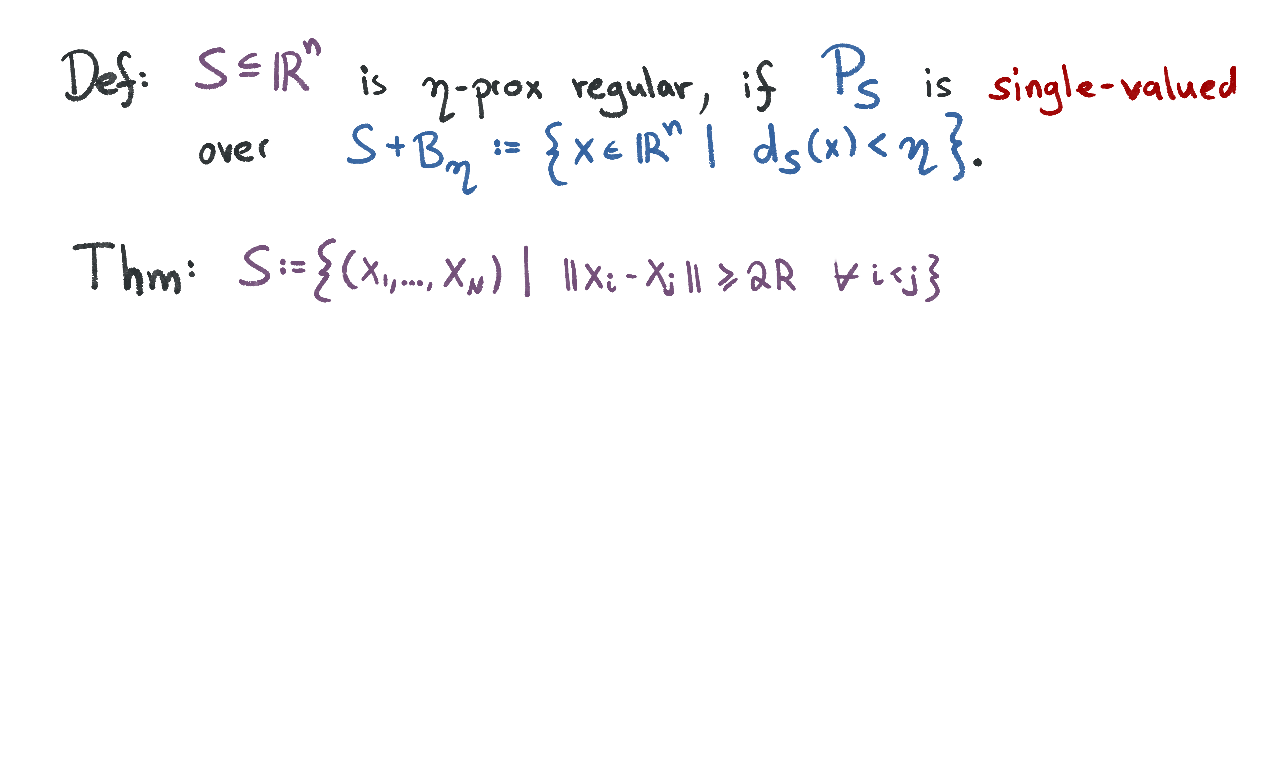 Def: S ⊆ ℝⁿ is η-prox regular, if P_S is single-valued
over S + B_η := {x ∈ ℝⁿ | d_S(x) < η}.
Thm: S := {(x₁,..., x_N) | ‖x_i - x_j‖ ⩾ 2R ∀ i<j}